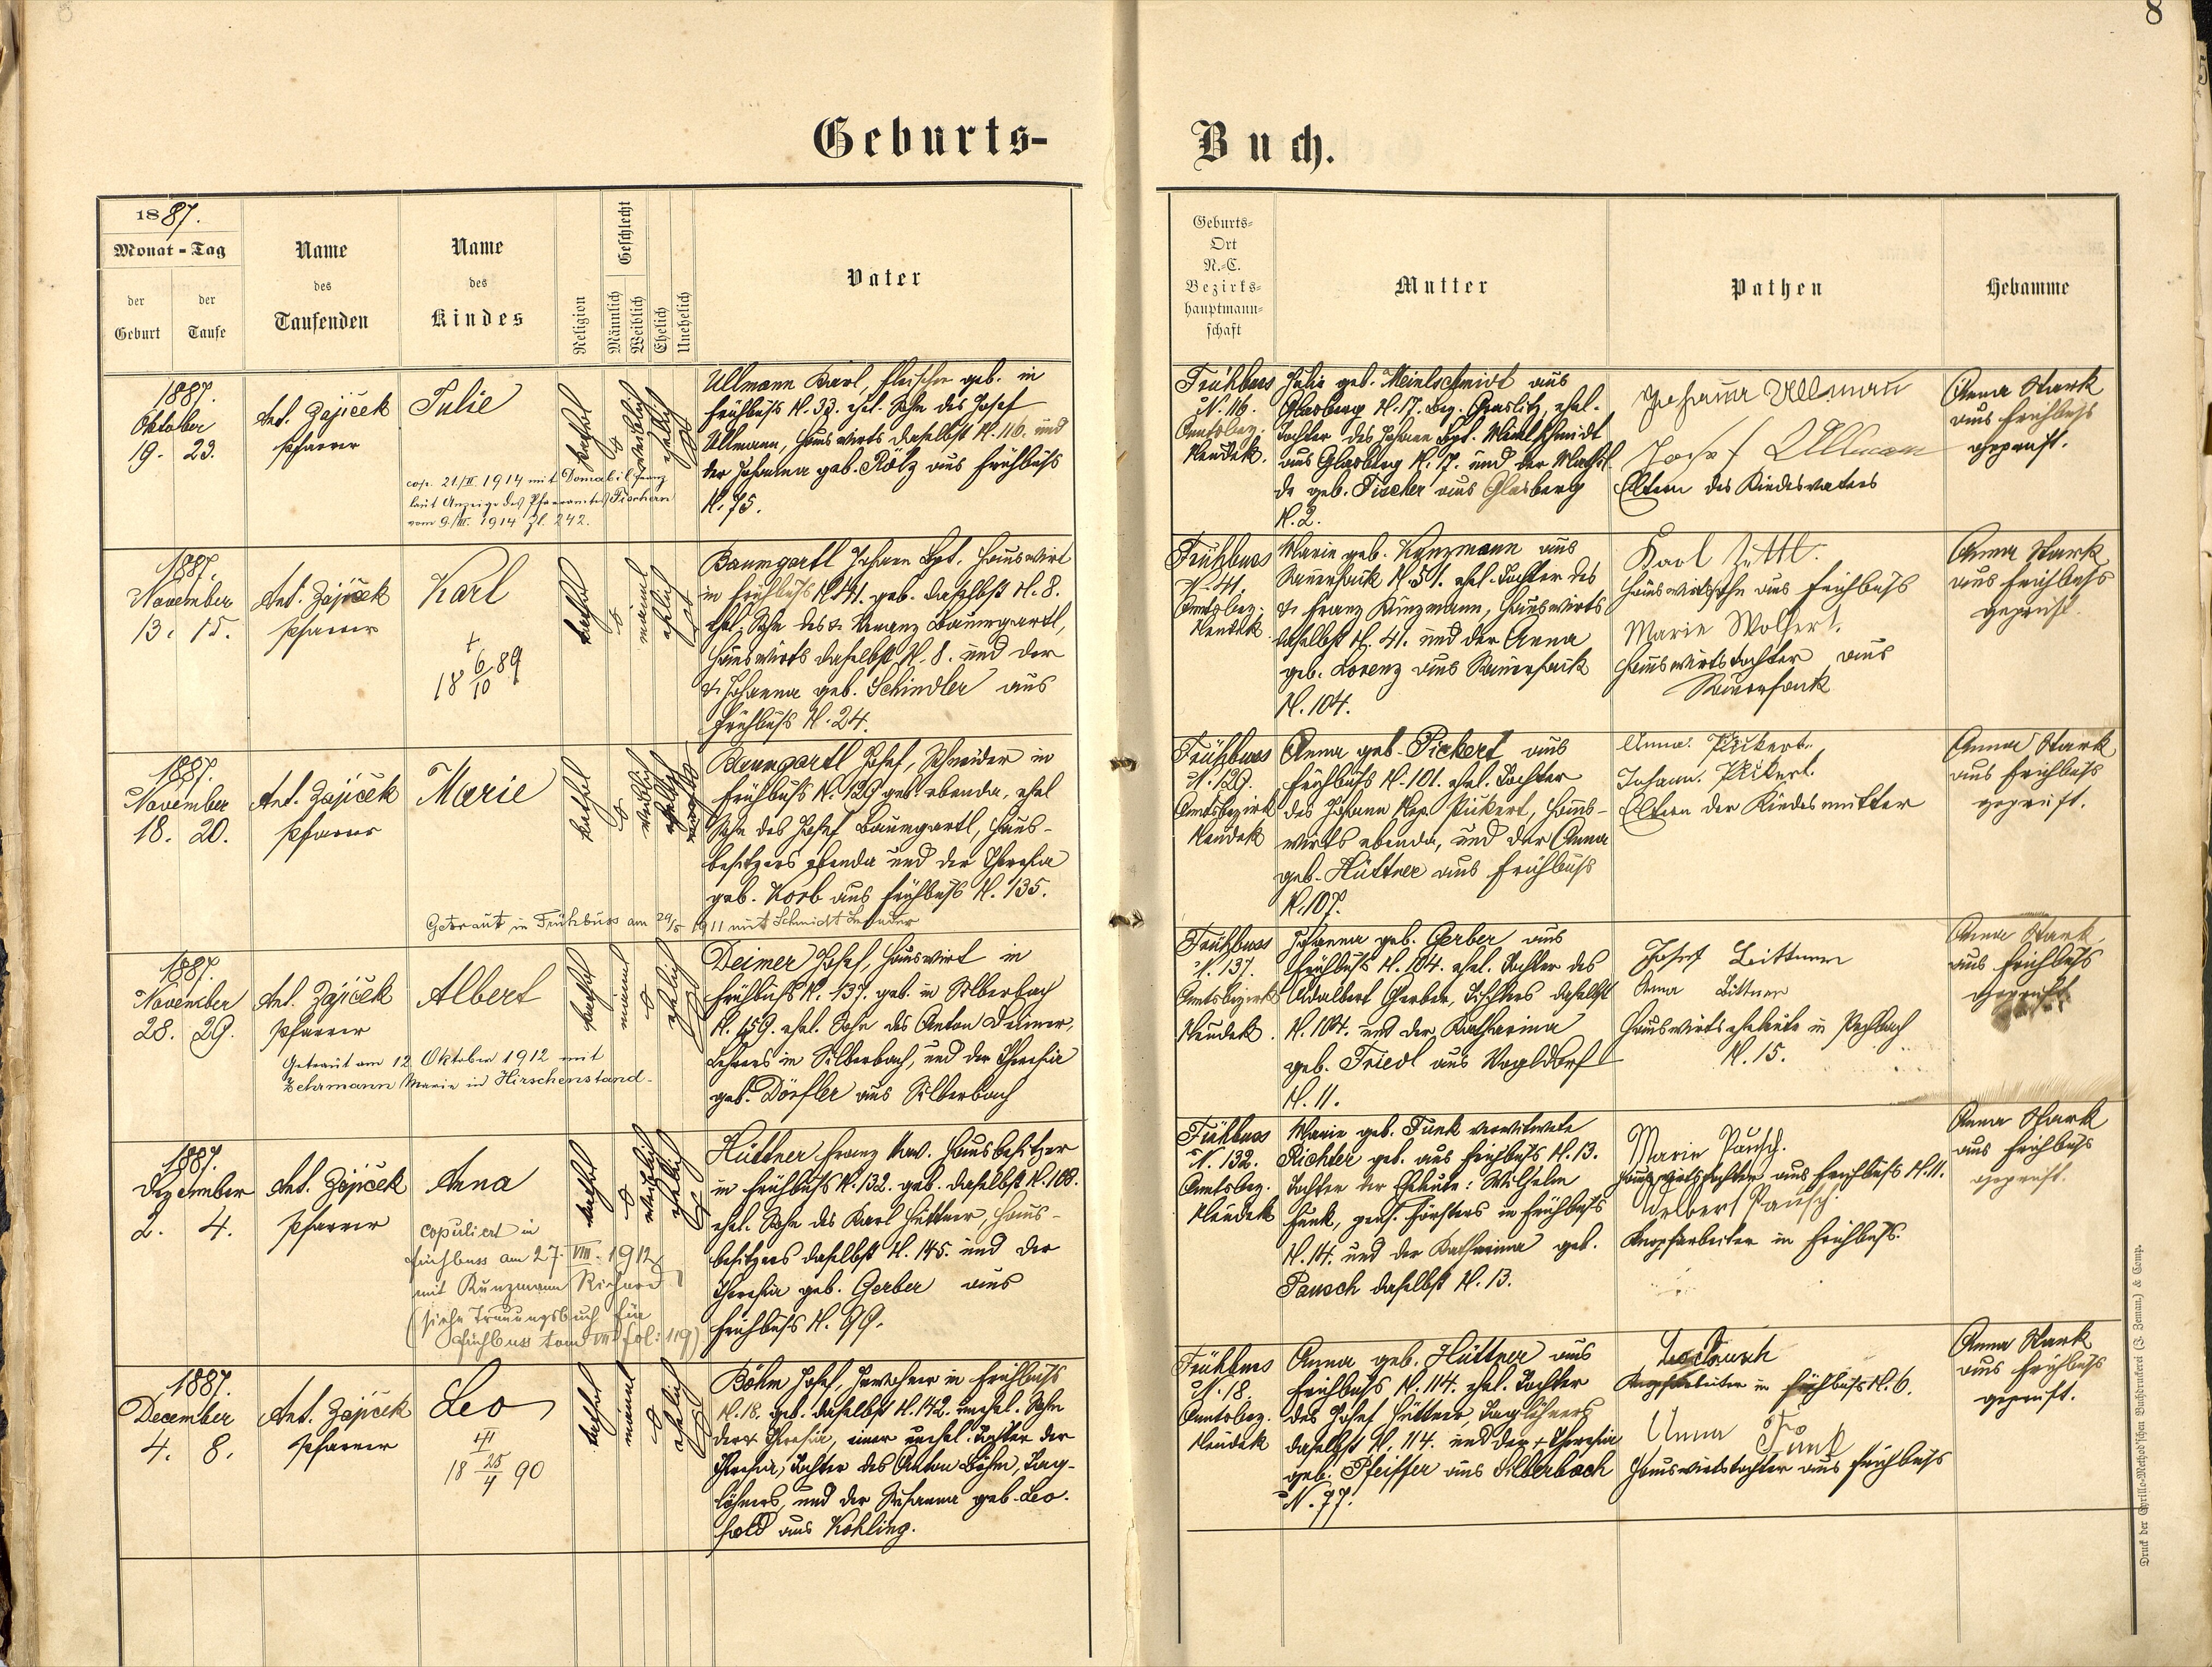 8
Geburts-
Buch.
1887.
Monat - Tag
der
Geburt
der
Taufe
Name
des
Taufenden
Name
des
Kindes
Religion
Geschlecht
Männlich
Weiblich
Ehelich
Unehelich
Vater
Geburts-
Ort
N.-C.
Bezirks-
hauptmann-
schaft
Mutter
Pathen
Hebamme
1887.
Oktober
19. 23.
Ant. Zajiček
Pfarrer
Julie
cop. 21/II 1914 mit
laut Anzeige des Pfarramtes
vom 9./III. 1914 Zl. 242.
kathol
weiblich
ehelich
Ullmann Karl, Fleischer geb. in
Frühbuß N. 33. ehel. Sohn des Josef
Ullmann, Hauswirts daselbst N. 116. und
der Johanna geb. Rölz aus Frühbuß
N. 75.
Frühbuss
N. 116.
Amtsbez.
Neudek.
Julie geb. Meinlschmidt aus
Glasberg N. 17. Bez. Graslitz, ehel.
Tochter des Johann Bpt. Meinlschmidt
aus Glasberg N. 17. und der Mathil-
de geb. Fischer aus Glasberg
N. 2.
Johanna Ullmann
Josef Ullmann
Eltern des Kindesvaters
Anna Stark
aus Frühbuß
geprüft.
1887.
November
13. 15.
Ant. Zajiček
Pfarrer
Karl
+
18 6/10 89
kathol
männl
ehelich
Baumgartl Johann Bpt. Hauswirt
in Frühbuß N. 41. geb. daselbst N. 8.
ehel. Sohn des + Franz Baumgartl,
Hauswirts daselbst N. 8. und der
+ Johanna geb. Schindler aus
Frühbuß N. 24.
Frühbuss
N. 41.
Amtsbez.
Neudek
Marie geb. Kunzmann aus
Sauersack N. 51. ehel. Tochter des
+ Franz Kunzmann, Hauswirts
daselbst N. 41. und der Anna
geb. Lorenz aus Sauersack
N. 104.
Karl
Hauswirtssohn aus Frühbuß
Marie
Hauswirtstochter aus
Sauersack
Anna Stark
aus Frühbuß
geprüft.
1887.
November
18. 20.
Ant. Zajiček
Pfarrer
Marie
Getraut in Frühbuss am 29/5 1911 mit Schmidt
kathol
weiblich
ehelich
Baumgartl Josef, Schneider in
Frühbuß N. 129 geb. ebenda, ehel
Sohn des Josef Baumgartl, Haus-
besitzers ebenda und der Theresia
geb. Korb aus Frühbuß N. 135.
Frühbuss
N. 129.
Amtsbezirk
Neudek
Anna geb. Pickert aus
Frühbuß N. 101. ehel. Tochter
des Johann Nep. Pickert, Haus-
wirts ebenda, und der Anna
geb. Hüttner aus Frühbuß
N. 107.
Anna Pickert.
Johann Pickert.
Eltern der Kindesmutter
Anna Stark
aus Frühbuß
geprüft.
1887.
November
28. 29.
Ant. Zajiček
Pfarrer
Albert
Getraut am 12 Oktober 1912 mit
Zehrmann Marie in Hirschenstand.
kathol
männl
ehelich
Deimer Josef, Hauswirt in
Frühbuß N. 137. geb. in Silberbach
N. 159. ehel. Sohn des Anton Deimer,
Lehrers in Silberbach, und der Theresia
geb. Dörfler aus Silberbach
Frühbuss
N. 137.
Amtsbezirk
Neudek.
Johanna geb. Gerber aus
Frühbuß N. 104. ehel. Tochter des
Adalbert Gerber, Tischlers daselbst
N. 104. und der Katharina
geb. Friedl aus Vogldorf
N. 11.
Josef Bittner
Anna Bittner
Hauswirtseheleute in
N. 15.
Anna Stark
aus Frühbuß
geprüft
1887.
Dezember
2. 4.
Ant. Zajiček
Pfarrer
Anna
copuliert in
Frühbuss am 27. VIII. 1912
mit Kunzmann Richard
(siehe Trauungsbuch für
Frühbuss tom VII fol: 119)
kathol
weiblich
ehelich
Hüttner Franz Xav. Hausbesitzer
in Frühbuß N. 132. geb. daselbst N. 108.
ehel. Sohn des Karl Hüttner, Haus-
besitzers daselbst N. 145. und der
Theresia geb. Gerber aus
Frühbuß N. 99.
Frühbuss
N. 132.
Amtsbez.
Neudek
Marie geb. Funk verwitwete
Richter geb. aus Frühbuß N. 13.
Tochter der Eheleute: Wilhelm
Funk, pens. Försters in Frühbuß
N. 14. und der Katharina geb.
Pausch daselbst N. 13.
Marie Pausch.
Hauswirtstochter aus Frühbuß N. 11.
Adelbert Pausch.
Knopfarbeiter in Frühbuß.
Anna Stark
aus Frühbuß
geprüft.
1887.
December
4. 8.
Ant. Zajiček
Pfarrer
Leo
18 25/4 90
kathol
männl
ehelich
Böhm Josef, Inwohner in Frühbuß
N. 18. geb. daselbst N. 142. unehel. Sohn
der + Theresia, einer unehel. Tochter der
Theresia, Tochter des Anton Böhm, Tag-
löhners, und der Susanna geb. Leo-
hold aus Kohling.
Frühbuss
N. 18.
Amtsbez.
Neudek
Anna geb. Hüttner aus
Frühbuß N. 114. ehel. Tochter
des Josef Hüttner, Taglöhners
daselbst N. 114. und der + Theresia
geb. Pfeiffer aus Silberbach
N. 77.
Knopfarbeiter in Frühbuß N. 6.
Anna Funk
Hauswirtstochter aus Frühbuß
Anna Stark
aus Frühbuß
geprüft.
Druck der Cyrillo-Method'schen Buchdruckerei (J. Zeman.) & Comp.